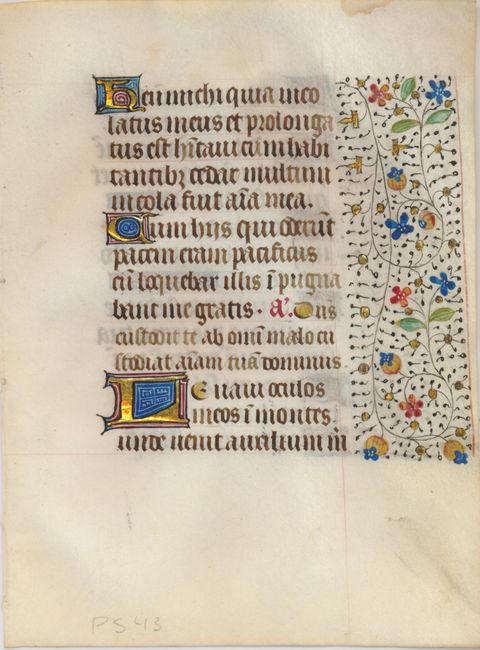 Heu michi quia inco
latus meus et prolonga
tus est hītaui cum habi
tantibꝫ cedar multum
incola fuit aīa mea.
Cum hijs qui oderūt
pacem eram pacificus
cū loquebar illis ī pugna
bant me gratis. añ. Dn̄s
custodit te ab omī malo cu
stodiat aīam tuā dominus.
LEuaui oculos
meos ī montes.
unde uenit auxilium m̄
PS 43